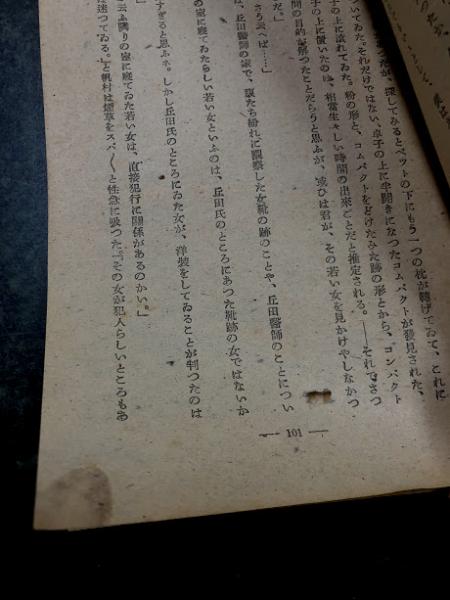 つたが、探してみるとベツトの下にもう一つの枕が轉げてゐて、これに
ついてゐた。それだけではない、卓子の上に半開きになつたコムパクトが發見された、
子の上に流れてゐた。粉の形と、コムパクトをどけたみた跡の形とから、コンパクト
子の上に置いたのは、相當生々しい時間の出來ごとだと推定される。――それでさつ
間の目的が解つたことだらうと思ふが、或ひは君が、その若い女を見かけやしなかつ
だ。」
さう云へば……」
、丘田醫師の家で、寢たち紛れに觀察した女靴の跡のことや、丘田醫師のことについ
」
の室に寢てゐたらしい若い女といふのは、丘田氏のところにあつた靴跡の女ではないか
すぎると思ふネ。しかし丘田氏のところにゐた女が、洋裝をしてゐることが判つたのは
」
云ふ隣りの室に寢てゐた若い女は、直接犯行に關係があるのかい。」
は迷つてゐる。」と帆村は煙草をスパ〱と性急に吸つた。「その女が犯人らしいところもあ
― 101 ―